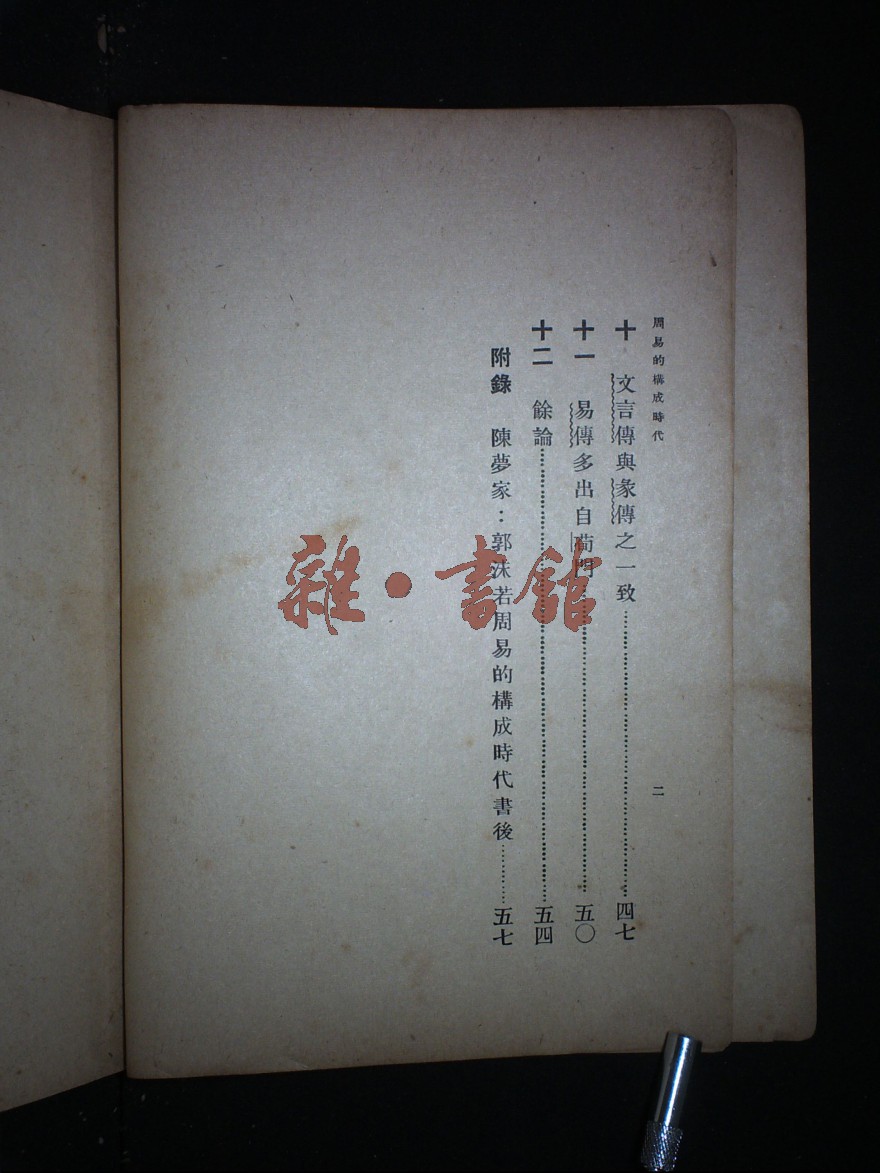 周易的構成時代
二
十 文言傳與彖傳之一致……四七
十一 易傳多出自荀門……五〇
十二 餘論……五四
附錄 陳夢家：郭沫若周易的構成時代書後……五七
雜·書館